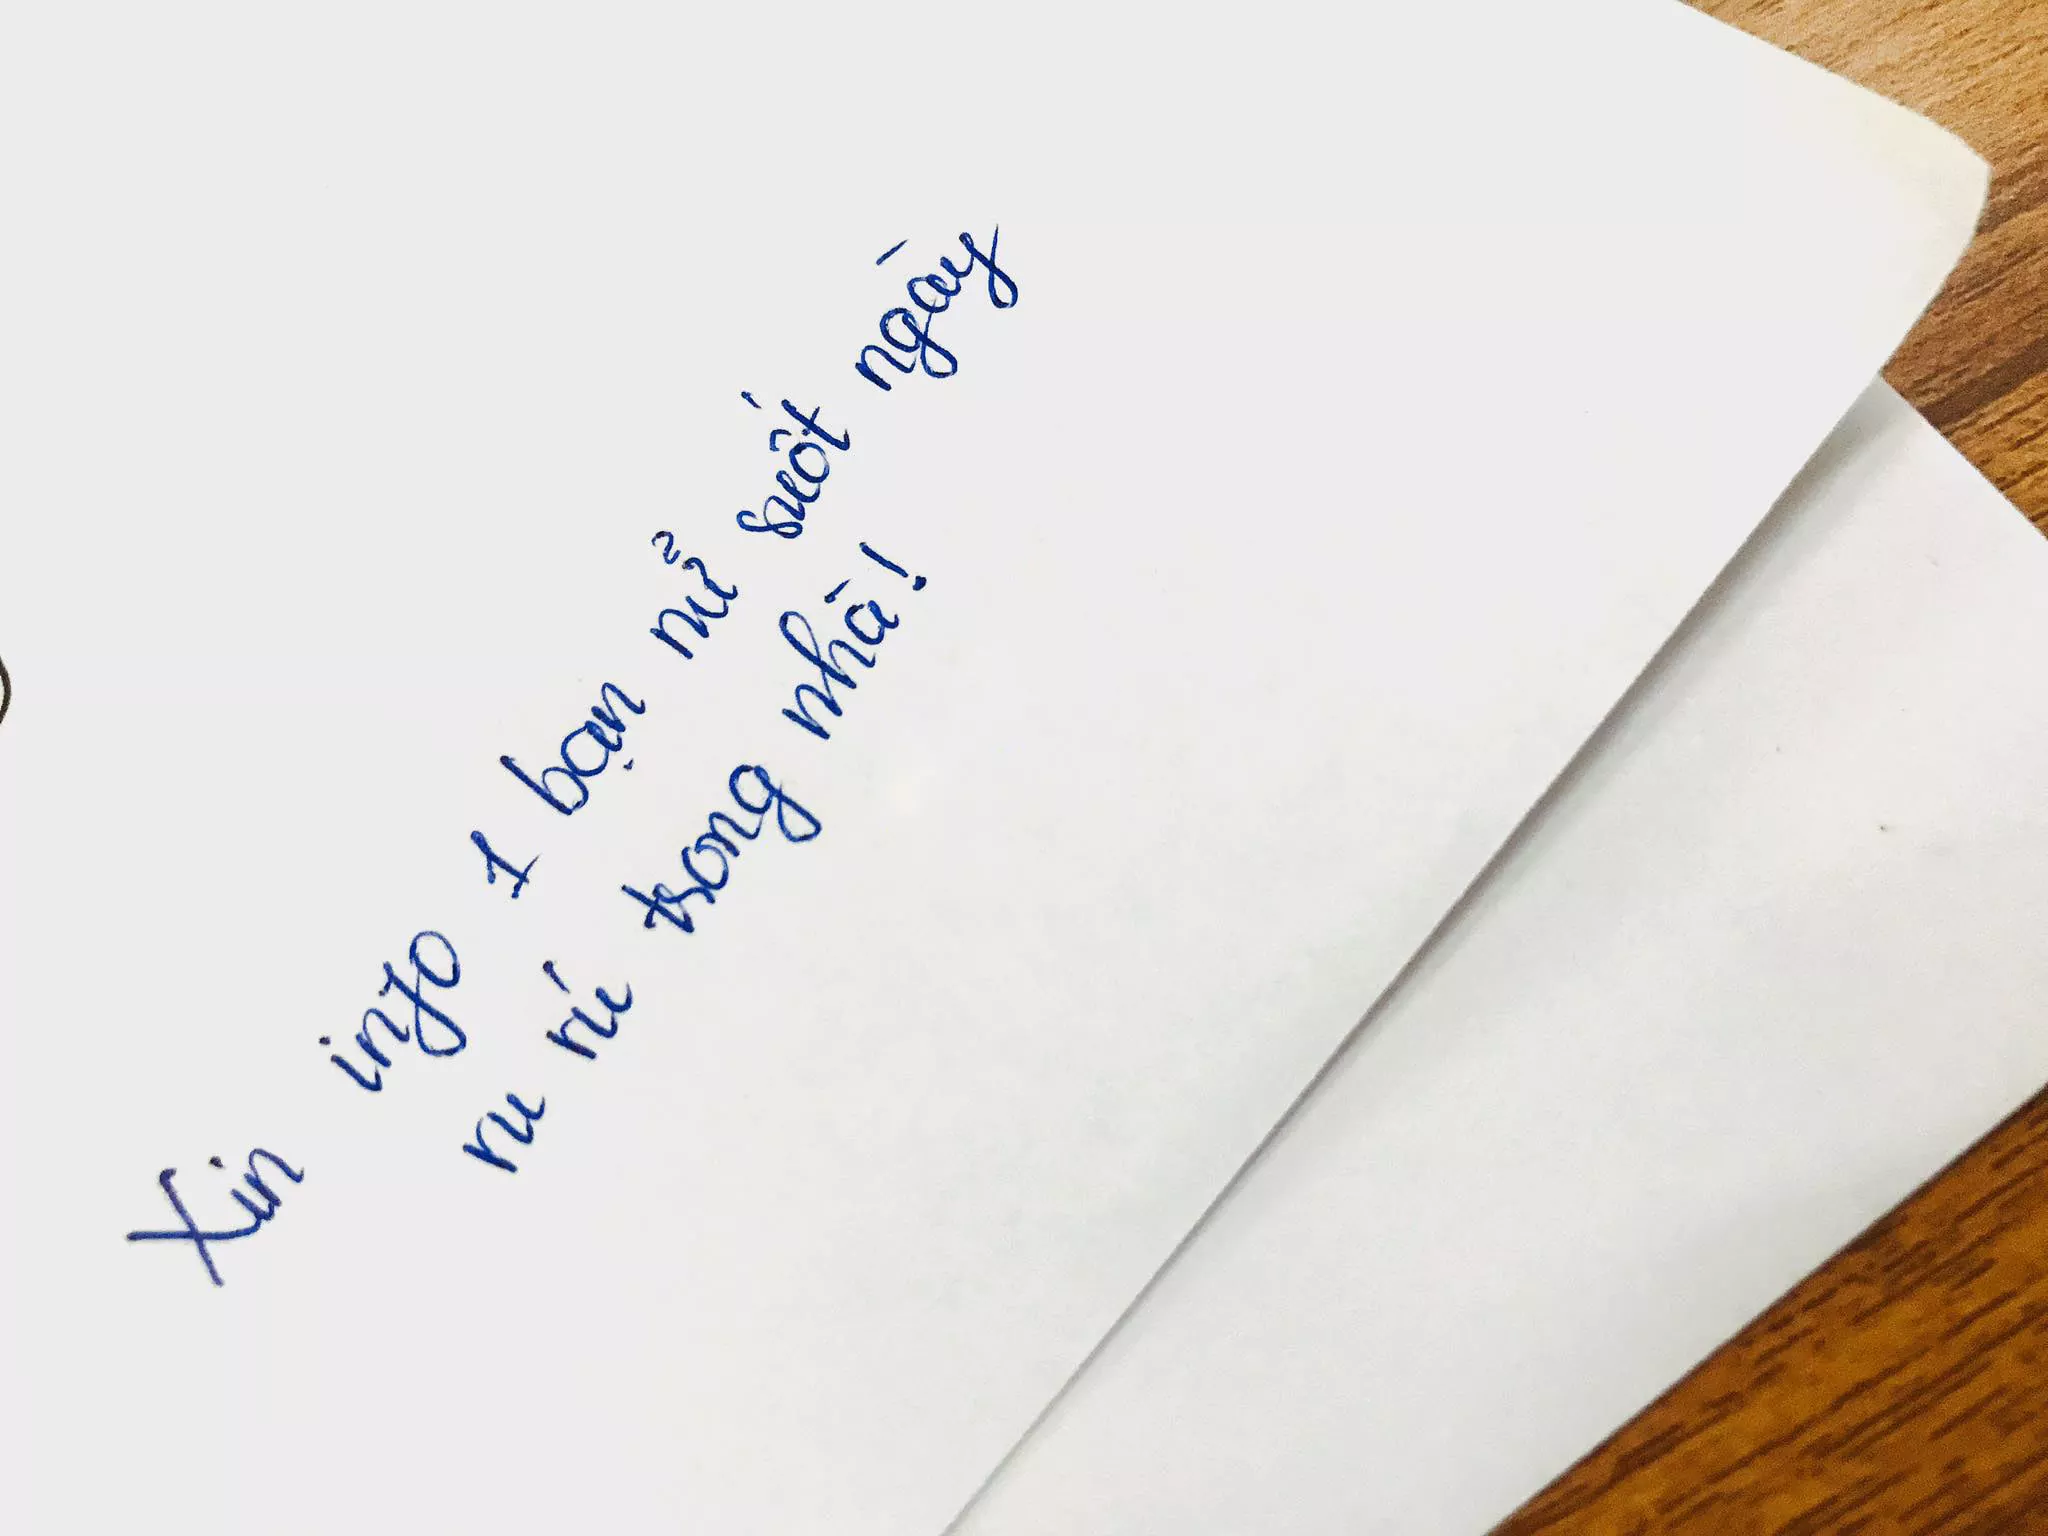 Xin info 1 bạn nử suốt ngày
ru rú trong nhà!